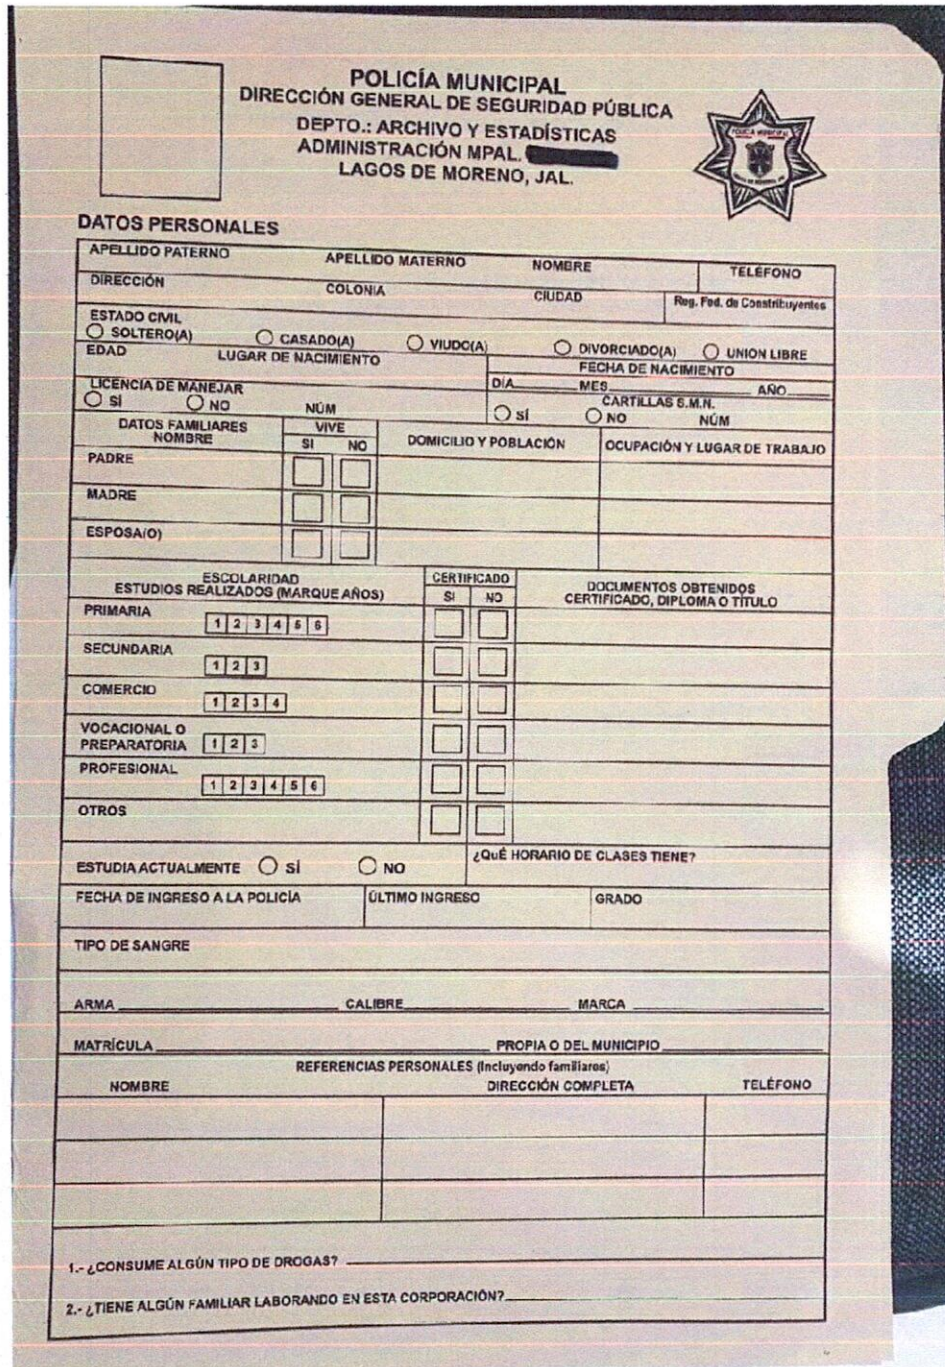 POLICÍA MUNICIPAL
DIRECCIÓN GENERAL DE SEGURIDAD PÚBLICA
DEPTO.: ARCHIVO Y ESTADÍSTICAS
ADMINISTRACIÓN MPAL.
LAGOS DE MORENO, JAL.
POLICIA MUNICIPAL
DATOS PERSONALES
APELLIDO PATERNO APELLIDO MATERNO NOMBRE TELÉFONO
DIRECCIÓN COLONIA CIUDAD Reg. Fed. de Constribuyentes
ESTADO CIVIL
SOLTERO(A) CASADO(A) VIUDO(A) DIVORCIADO(A) UNION LIBRE
EDAD LUGAR DE NACIMIENTO FECHA DE NACIMIENTO
DÍA MES AÑO
LICENCIA DE MANEJAR CARTILLAS S.M.N.
SÍ NO NÚM SÍ NO NÚM
DATOS FAMILIARES VIVE DOMICILIO Y POBLACIÓN OCUPACIÓN Y LUGAR DE TRABAJO
NOMBRE SI NO
PADRE
MADRE
ESPOSA(O)
ESCOLARIDAD CERTIFICADO DOCUMENTOS OBTENIDOS
ESTUDIOS REALIZADOS (MARQUE AÑOS) SI NO CERTIFICADO, DIPLOMA O TÍTULO
PRIMARIA 1 2 3 4 5 6
SECUNDARIA 1 2 3
COMERCIO 1 2 3 4
VOCACIONAL O
PREPARATORIA 1 2 3
PROFESIONAL 1 2 3 4 5 6
OTROS
ESTUDIA ACTUALMENTE SÍ NO ¿QUÉ HORARIO DE CLASES TIENE?
FECHA DE INGRESO A LA POLICÍA ÚLTIMO INGRESO GRADO
TIPO DE SANGRE
ARMA CALIBRE MARCA
MATRÍCULA PROPIA O DEL MUNICIPIO
REFERENCIAS PERSONALES (Incluyendo familiares)
NOMBRE DIRECCIÓN COMPLETA TELÉFONO
1.- ¿CONSUME ALGÚN TIPO DE DROGAS?
2.- ¿TIENE ALGÚN FAMILIAR LABORANDO EN ESTA CORPORACIÓN?